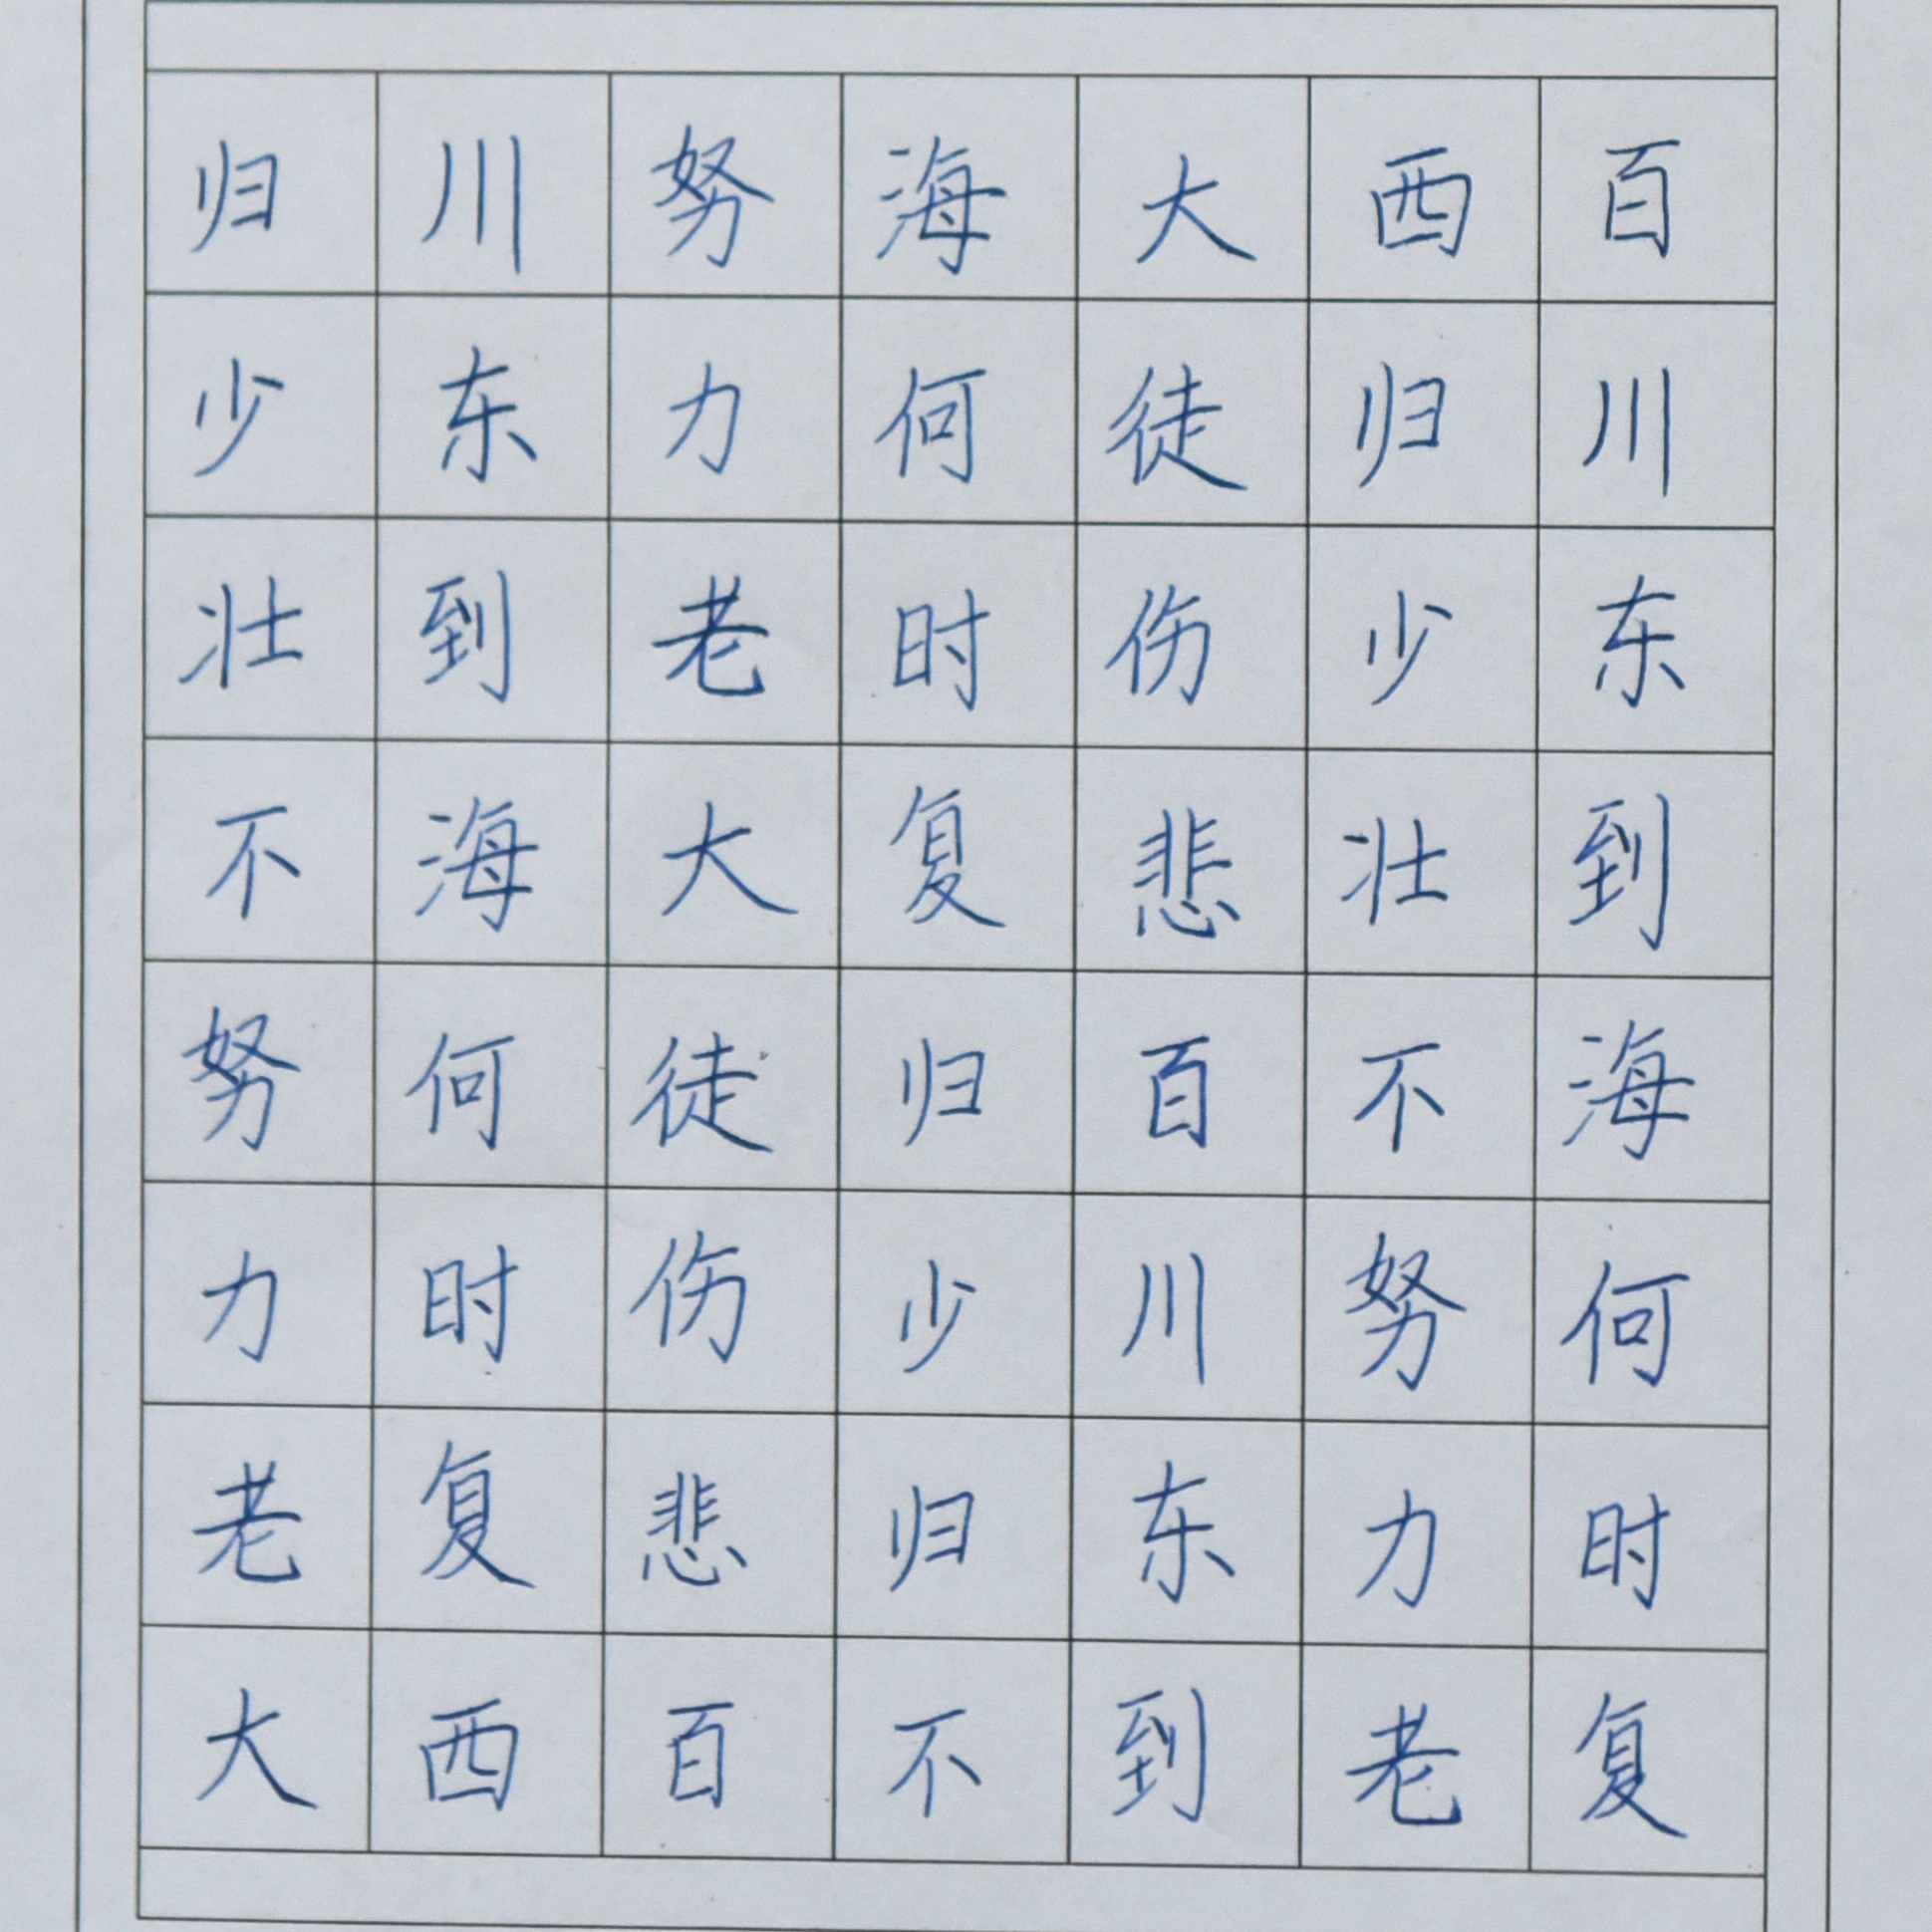 百川东到海何时复
西归少壮不努力老
大徒伤悲百川东到
海何时复归少归不
努力老大徒伤悲百
川东到海何时复西
归少壮不努力老大